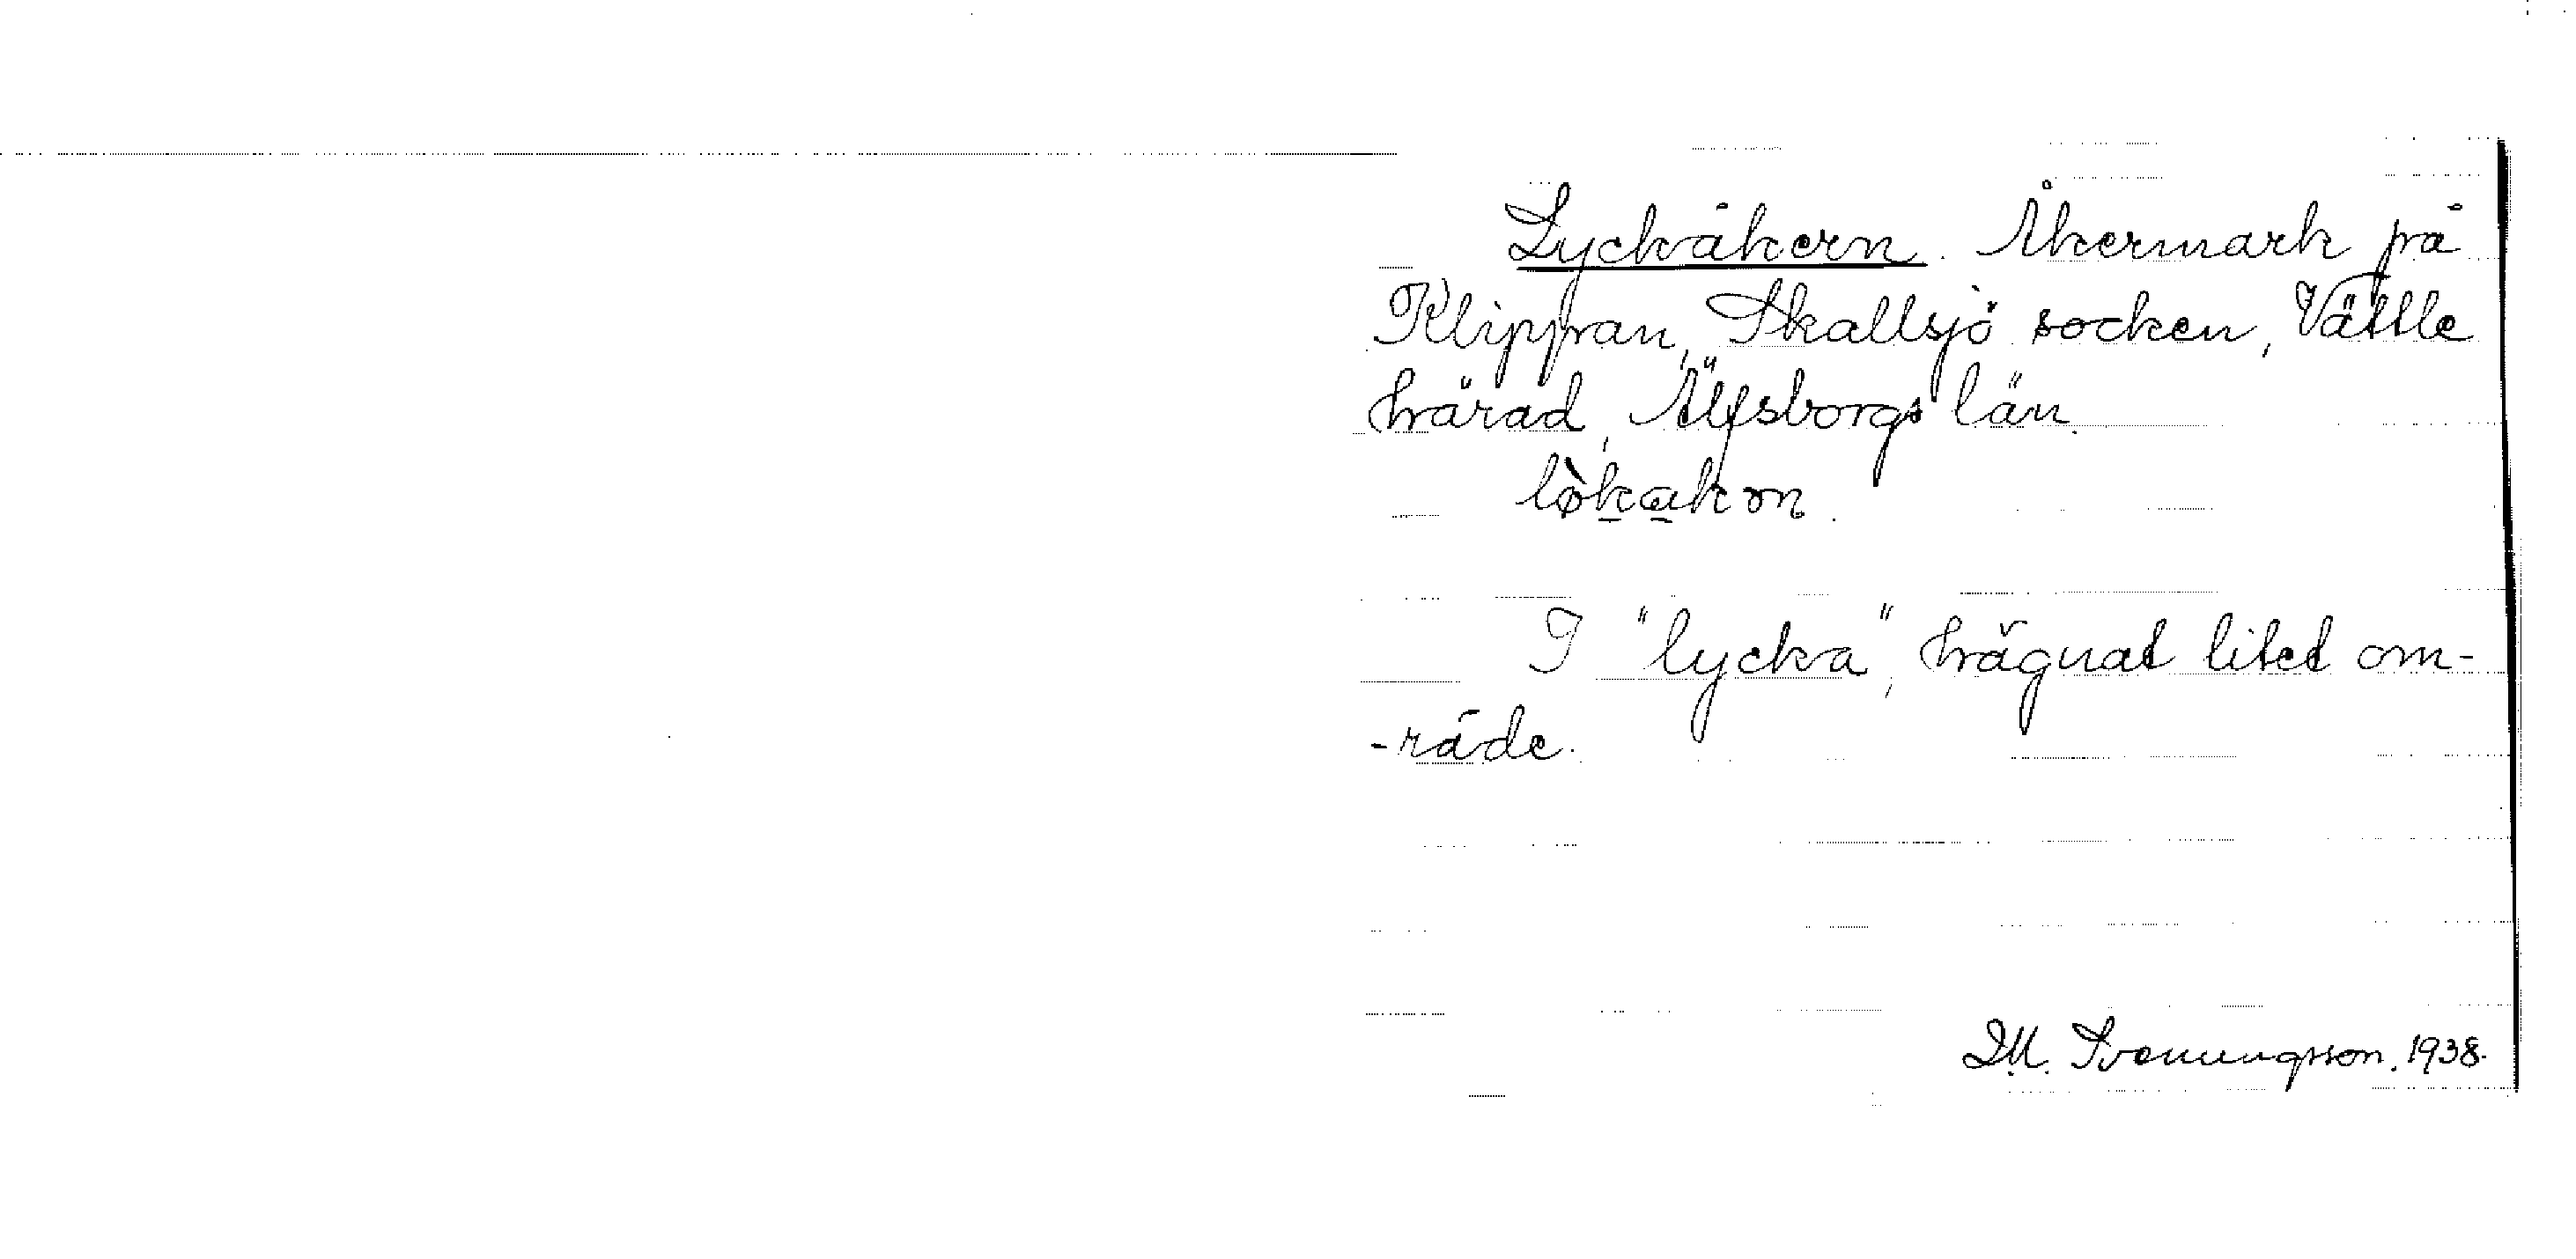 Lyckåkern. Åkermark på
Klippan, Skallsjö socken, Vättle
härad, Älfsborgs län.
lø̀kakɷn.
I "lycka", hägnat litet om-
-råde.
D.M. Svenungsson. 1938.